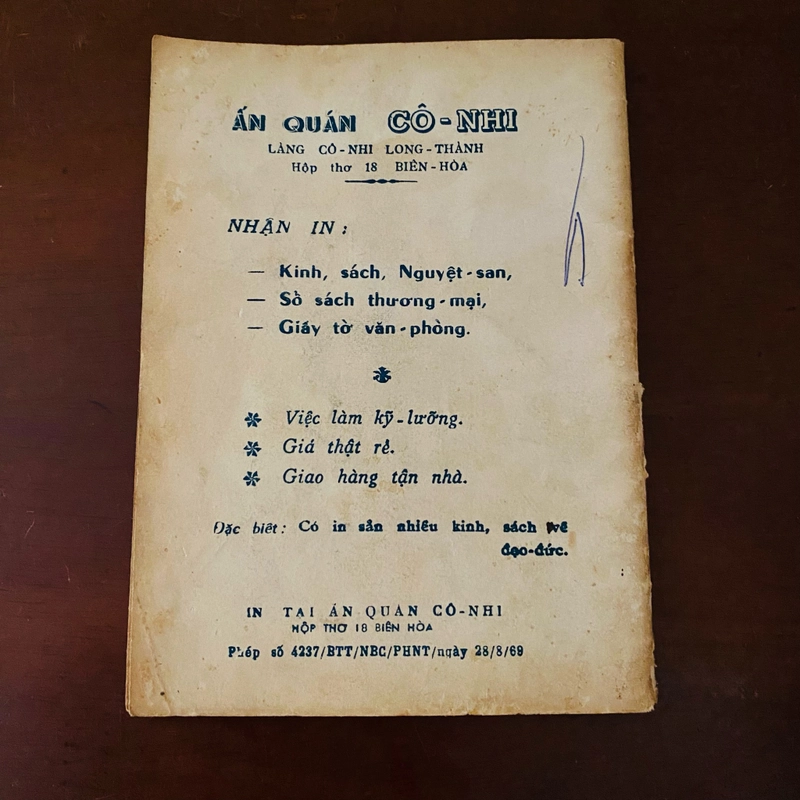 ẤN QUÁN CÔ-NHI
LÀNG CÔ-NHI LONG-THÀNH
Hộp thơ 18 BIÊN-HÒA
NHẬN IN :
— Kinh, sách, Nguyệt-san,
— Sổ sách thương-mại,
— Giấy tờ văn-phòng.
Việc làm kỹ-lưỡng.
Giá thật rẻ.
Giao hàng tận nhà.
Đặc biêt : Có in sẳn nhiều kinh, sách về
đạo-đức.
IN TẠI ẤN QUÁN CÔ-NHI
HỘP THƠ 18 BIÊN HÒA
Phép số 4237/BTT/NBC/PHNT/ngày 28/8/69